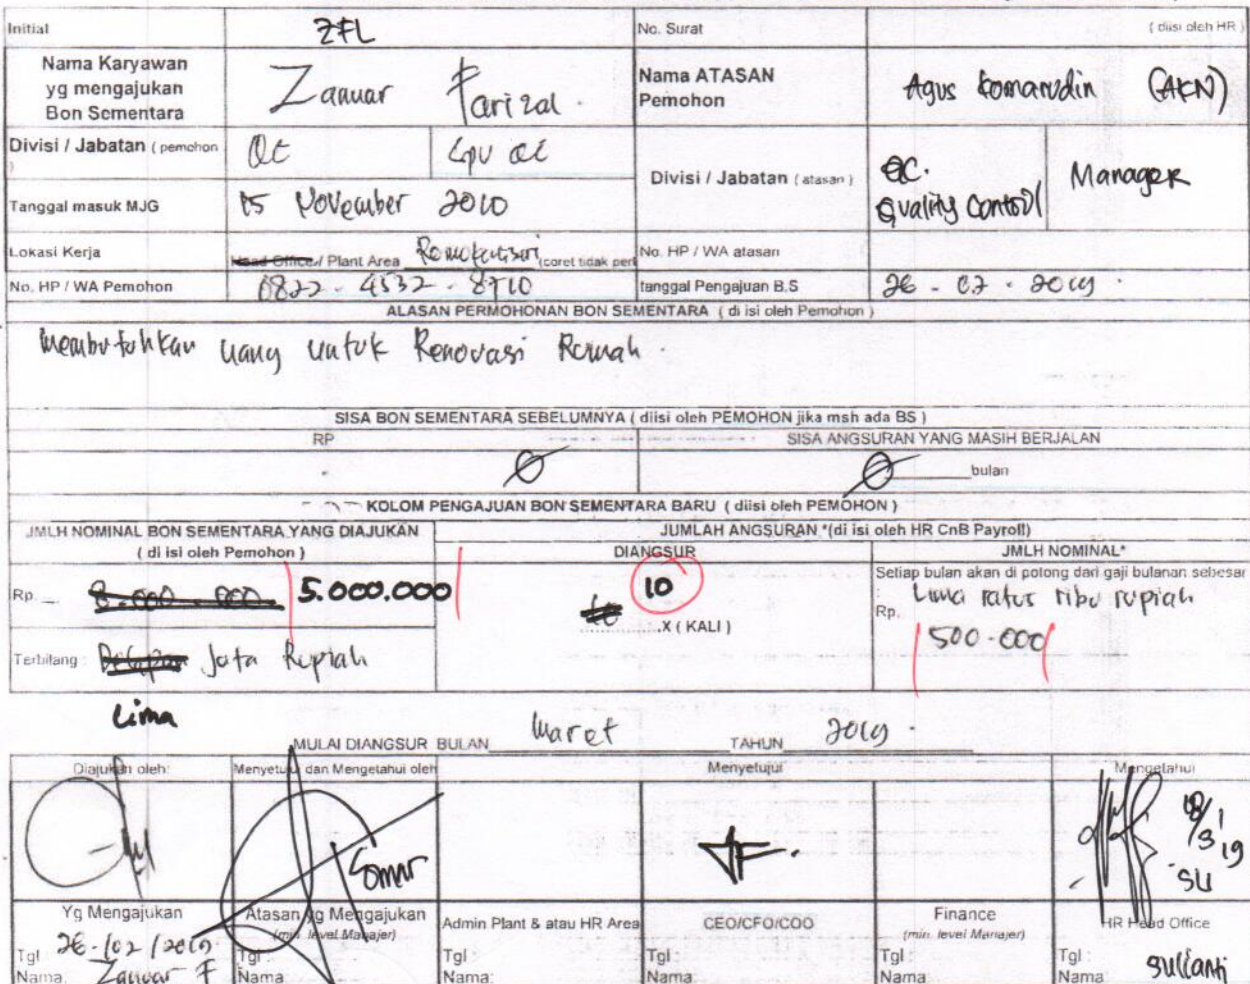 Initial ZFL No. Surat ( diisi oleh HR )
Nama Karyawan
yg mengajukan
Bon Sementara
Zanuar Farizal.
Nama ATASAN
Pemohon
Agus Komarudin (AKN)
Divisi / Jabatan ( pemohon
)
QC
Spv QC
Divisi / Jabatan ( atasan )
QC.
Quality Control
Manager
Tanggal masuk MJG 15 November 2010
Lokasi Kerja Head Office / Plant Area (coret tidak perl
No. HP / WA atasan
No. HP / WA Pemohon 0822 - 4532 - 8710
tanggal Pengajuan B.S 26 - 02 - 2019.
ALASAN PERMOHONAN BON SEMENTARA ( di isi oleh Pemohon )
Membutuhkan uang untuk Renovasi Rumah.
SISA BON SEMENTARA SEBELUMNYA ( diisi oleh PEMOHON jika msh ada BS )
RP SISA ANGSURAN YANG MASIH BERJALAN
bulan
KOLOM PENGAJUAN BON SEMENTARA BARU ( diisi oleh PEMOHON )
JMLH NOMINAL BON SEMENTARA YANG DIAJUKAN
( di isi oleh Pemohon )
JUMLAH ANGSURAN *(di isi oleh HR CnB Payroll)
DIANGSUR JMLH NOMINAL*
Rp. 8.000.000 5.000.000
10
X ( KALI )
Setiap bulan akan di potong dari gaji bulanan sebesar
:
Lima ratus ribu rupiah
Rp.
500.000
Terbilang : Delapan Juta Rupiah
Lima
MULAI DIANGSUR BULAN Maret TAHUN 2019.
Diajukan oleh: Menyetujui dan Mengetahui oleh Menyetujui Mengetahui
18/3 19
SU
Yg Mengajukan
Atasan yg Mengajukan
(min. level Manajer)
Admin Plant & atau HR Area
CEO/CFO/COO
Finance
(min. level Manajer)
HR Head Office
Tgl : 26-/02/2019 Tgl : Tgl : Tgl : Tgl : Tgl :
Nama: Zanuar F Nama: Nama: Nama: Nama: Nama: Sulianti